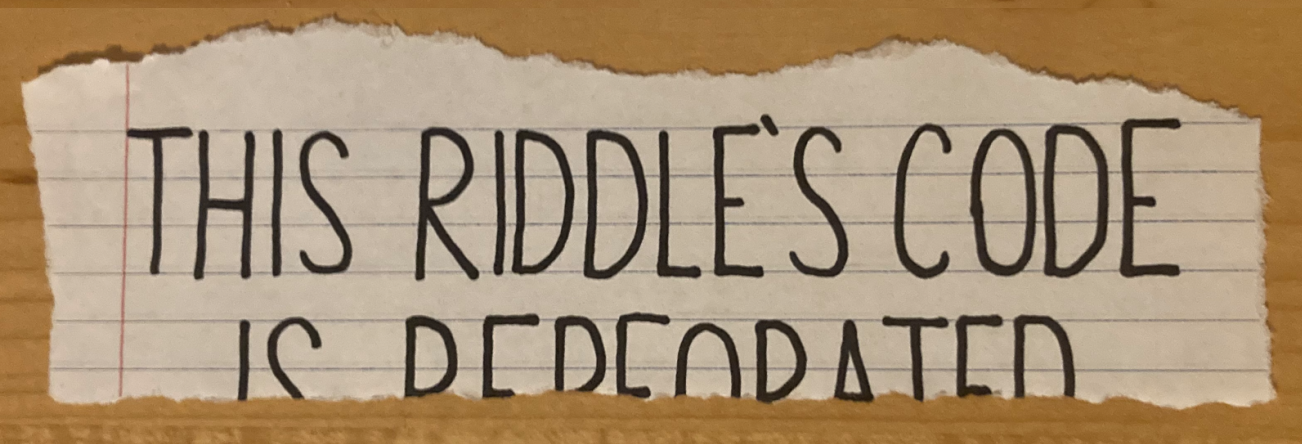 THIS RIDDLE'S CODE
IS PERFORATED